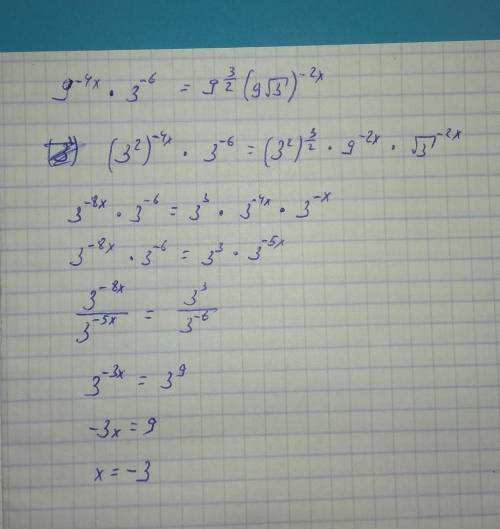 9^{-4x} · 3^{-6} = 9^{3/2} (9√3)^{-2x}
(3²)^{-4x} · 3^{-6} = (3²)^{3/2} · 9^{-2x} · √3^{-2x}
3^{-8x} · 3^{-6} = 3³ · 3^{-4x} · 3^{-x}
3^{-8x} · 3^{-6} = 3³ · 3^{-5x}
3^{-8x} / 3^{-5x} = 3³ / 3^{-6}
3^{-3x} = 3⁹
-3x = 9
x = -3